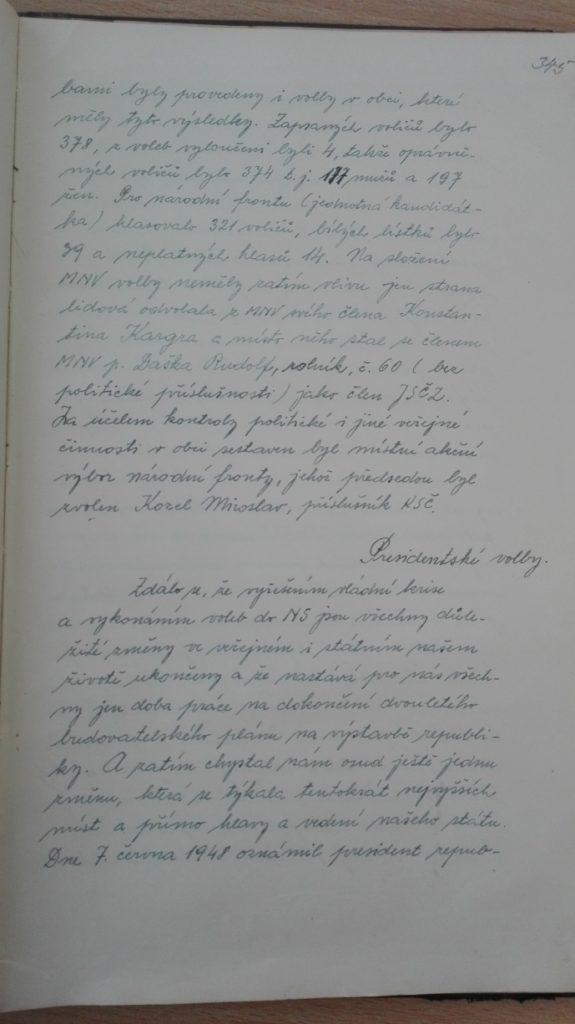 345
bami byly provedeny i volby v obci, které
měly tyto výsledky. Zapsaných voličů bylo
378, z voleb vyloučeni byli 4, takže oprávně-
ných voličů bylo 374 t. j. 177 mužů a 197
žen. Pro národní frontu (jednotná kandidát-
ka) hlasovalo 321 voličů, bílých lístků bylo
39 a neplatných hlasů 14. Na složení
MNV volby neměly zatím vlivu jen strana
lidová odvolala z MNV svého člena Konstan-
tina Kargra a místo něho stal se členem
MNV p. Daška Rudolf, rolník, č. 60 (bez
politické příslušnosti) jako člen JSČZ.
Za účelem kontroly politické i jiné veřejné
činnosti v obci sestaven byl místní akční
výbor národní fronty, jehož předsedou byl
zvolen Kozel Miroslav, příslušník KSČ.
Presidentské volby.
Zdálo se, že vyřešením vládní krise
a vykonáním voleb do NS jsou všechny důle-
žité změny ve veřejném i státním našem
životě ukončeny a že nastává pro nás všech-
ny jen doba práce na dokončení dvouletého
budovatelského plánu na výstavbě republi-
ky. A zatím chystal nám osud ještě jednu
změnu, která se týkala tentokrát nejvyšších
míst a přímo hlavy a vedení našeho státu.
Dne 7. června 1948 oznámil president repub-